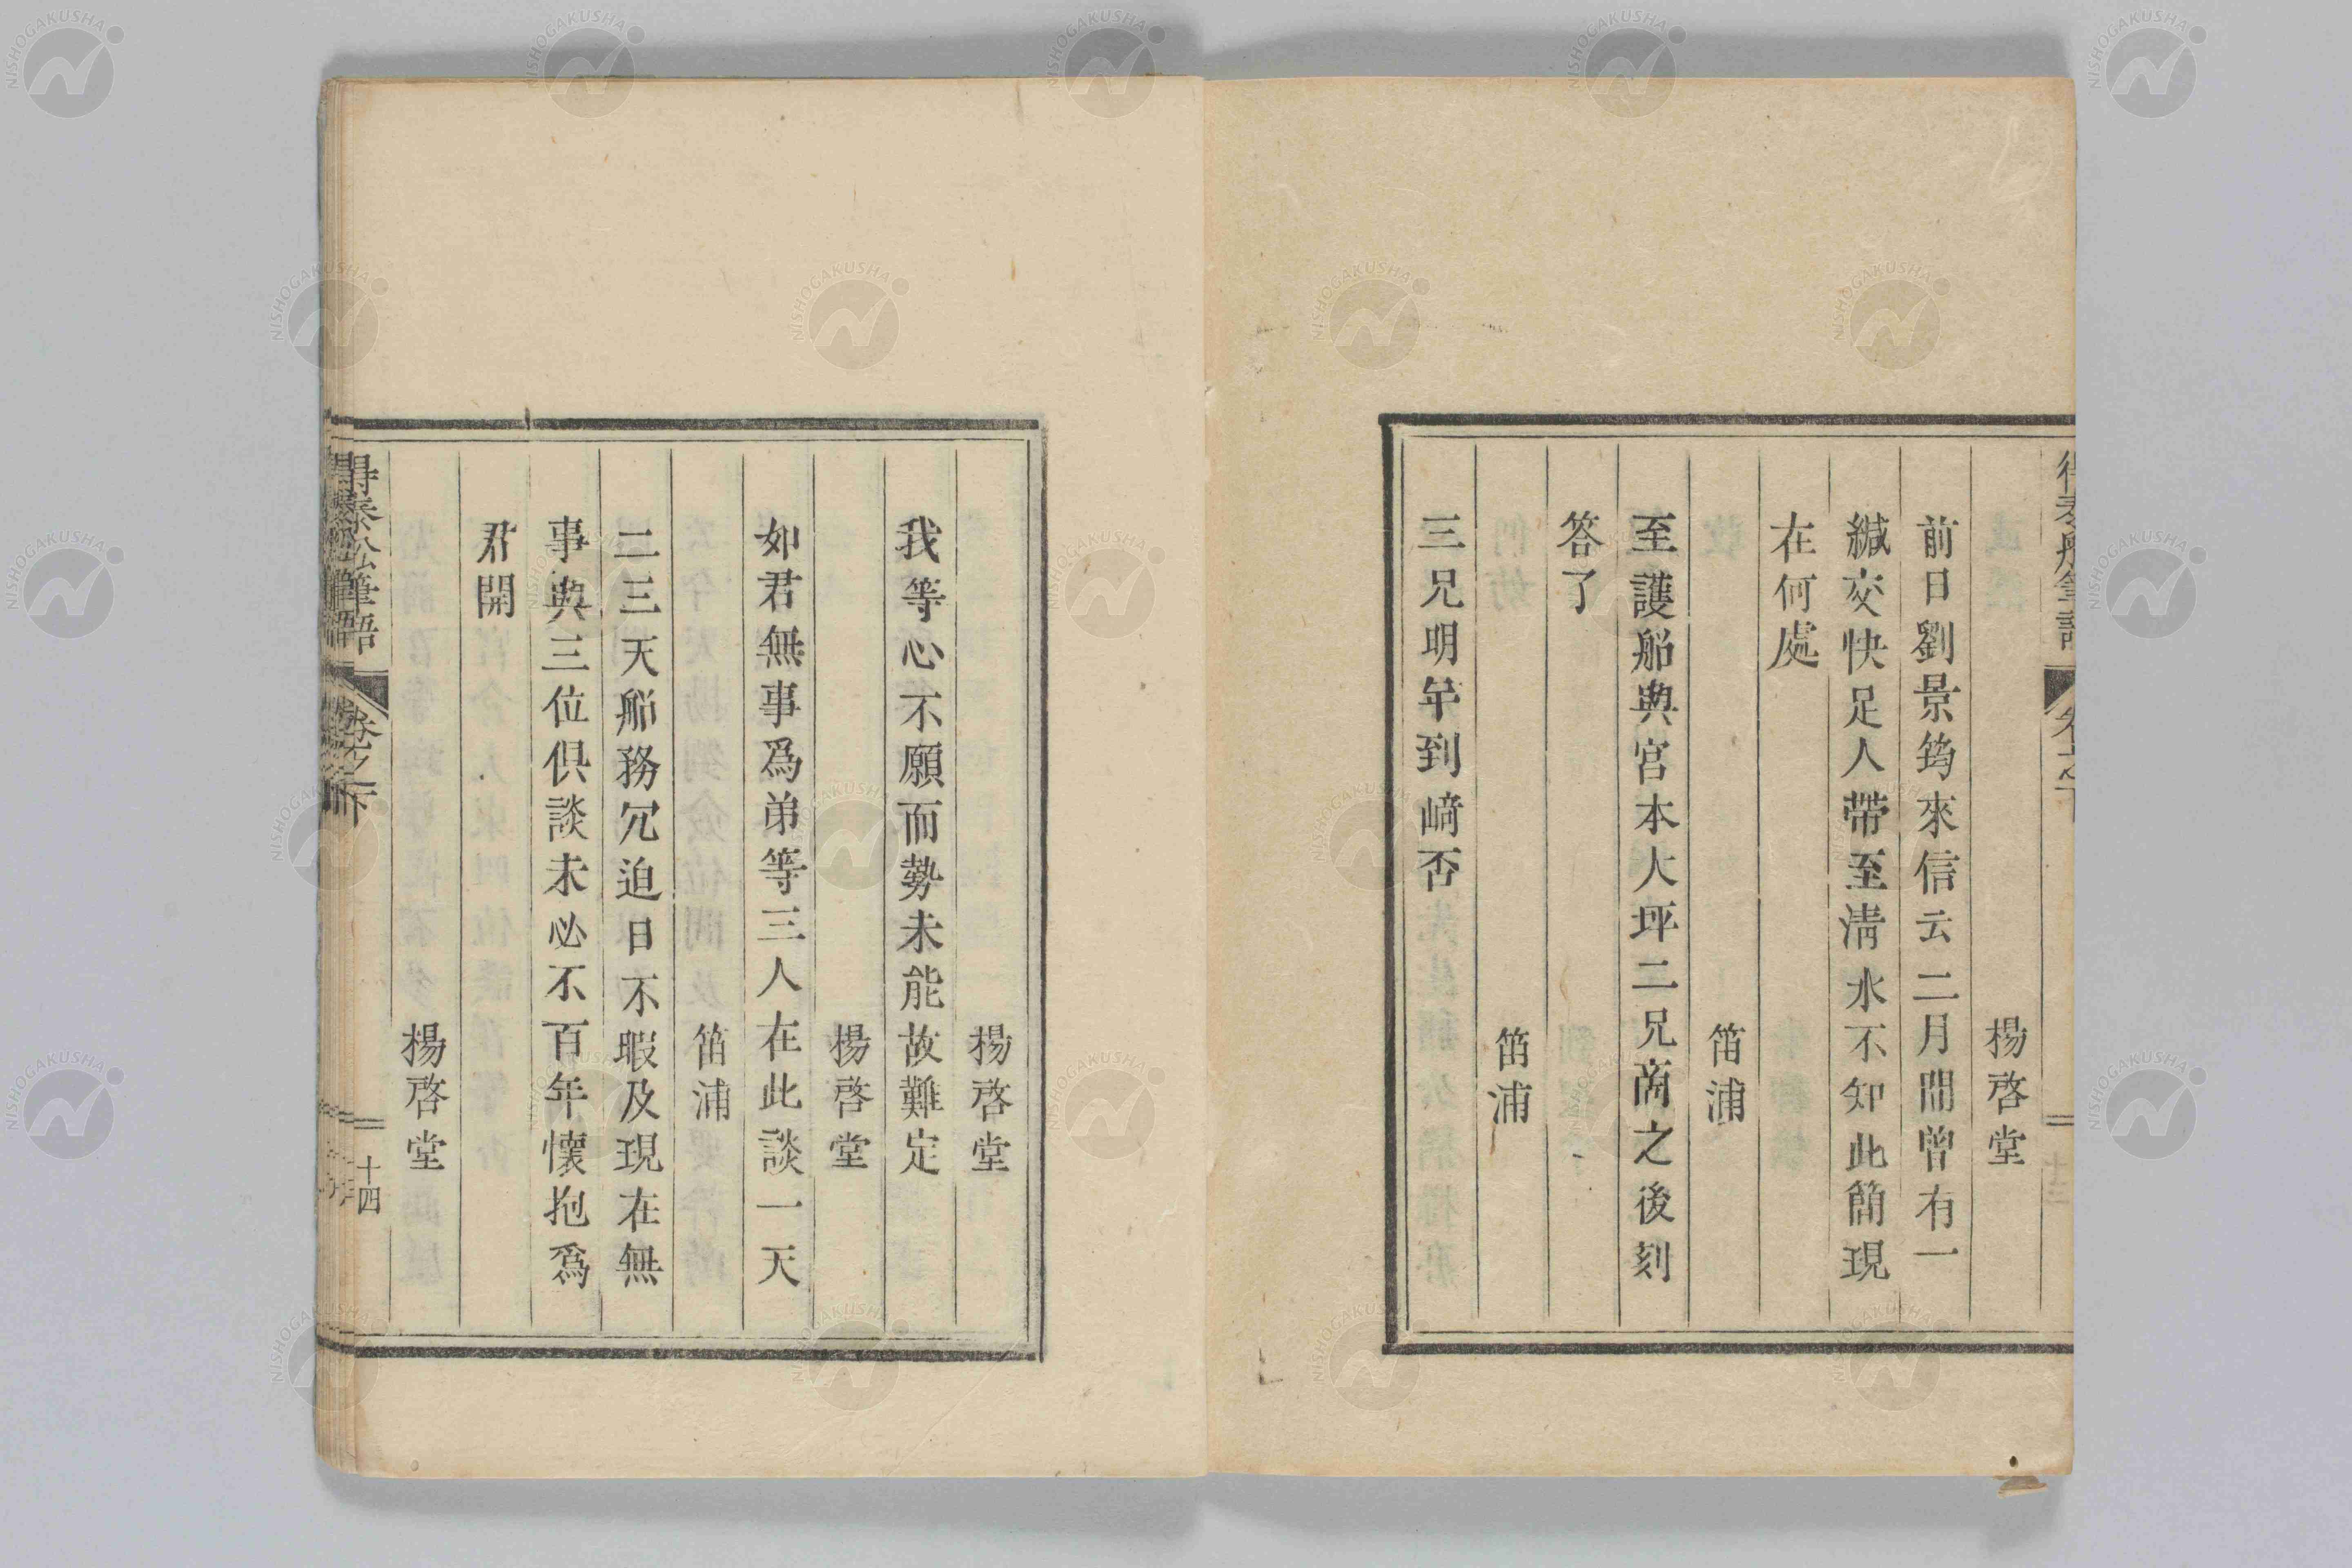 楊啓堂
前日劉景筠來信云二月間曾有一
緘交快足人帶至淸水不知此簡現
在何處
笛浦
至護船與宮本大坪二兄商之後刻
答了
笛浦
三兄明年到﨑否
楊啓堂
我等心不願而勢未能故難定
楊啓堂
如君無事爲弟等三人在此談一天
笛浦
二三天船務冗迫日不暇及現在無
事與三位俱談未必不百年懷抱爲
君開
楊啓堂
得泰船筆語
卷之下
十四
NISHOGAKUSHA